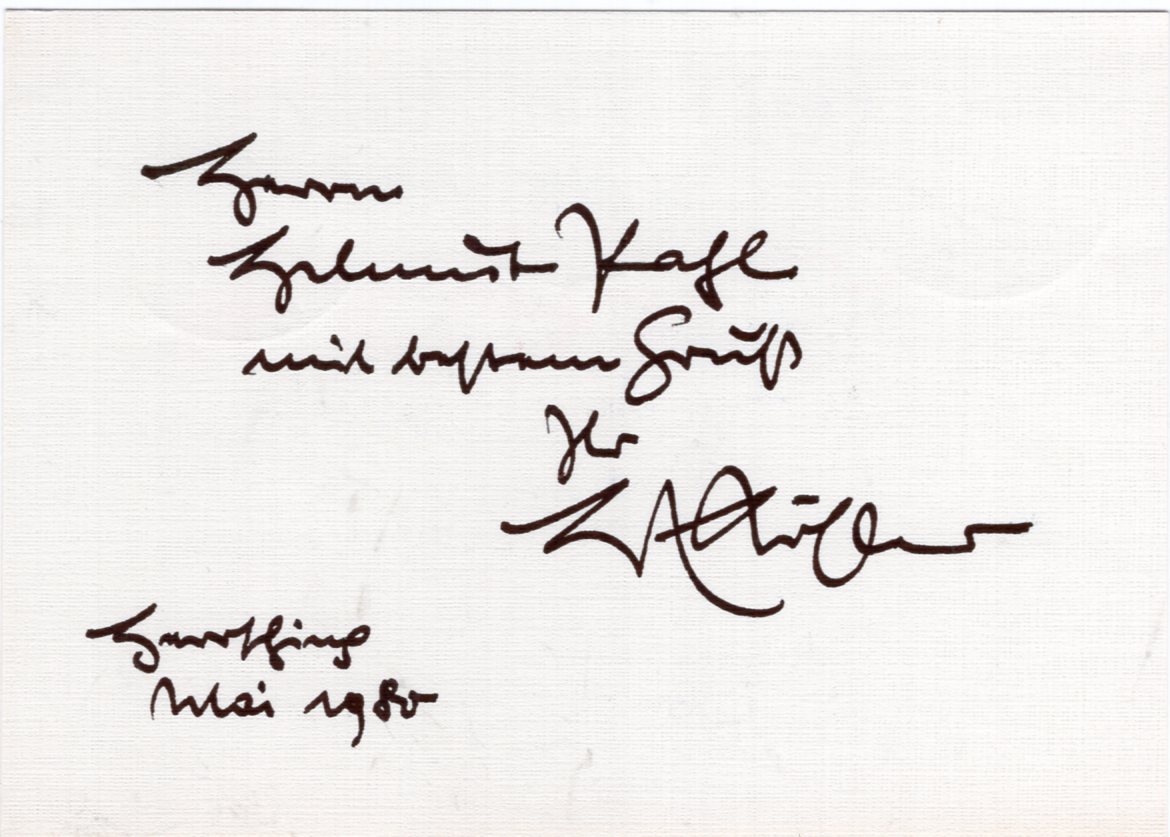 Herrn
Helmut Kahl
mit bestem Gruß
Ihr
Herrsching
Mai 1980